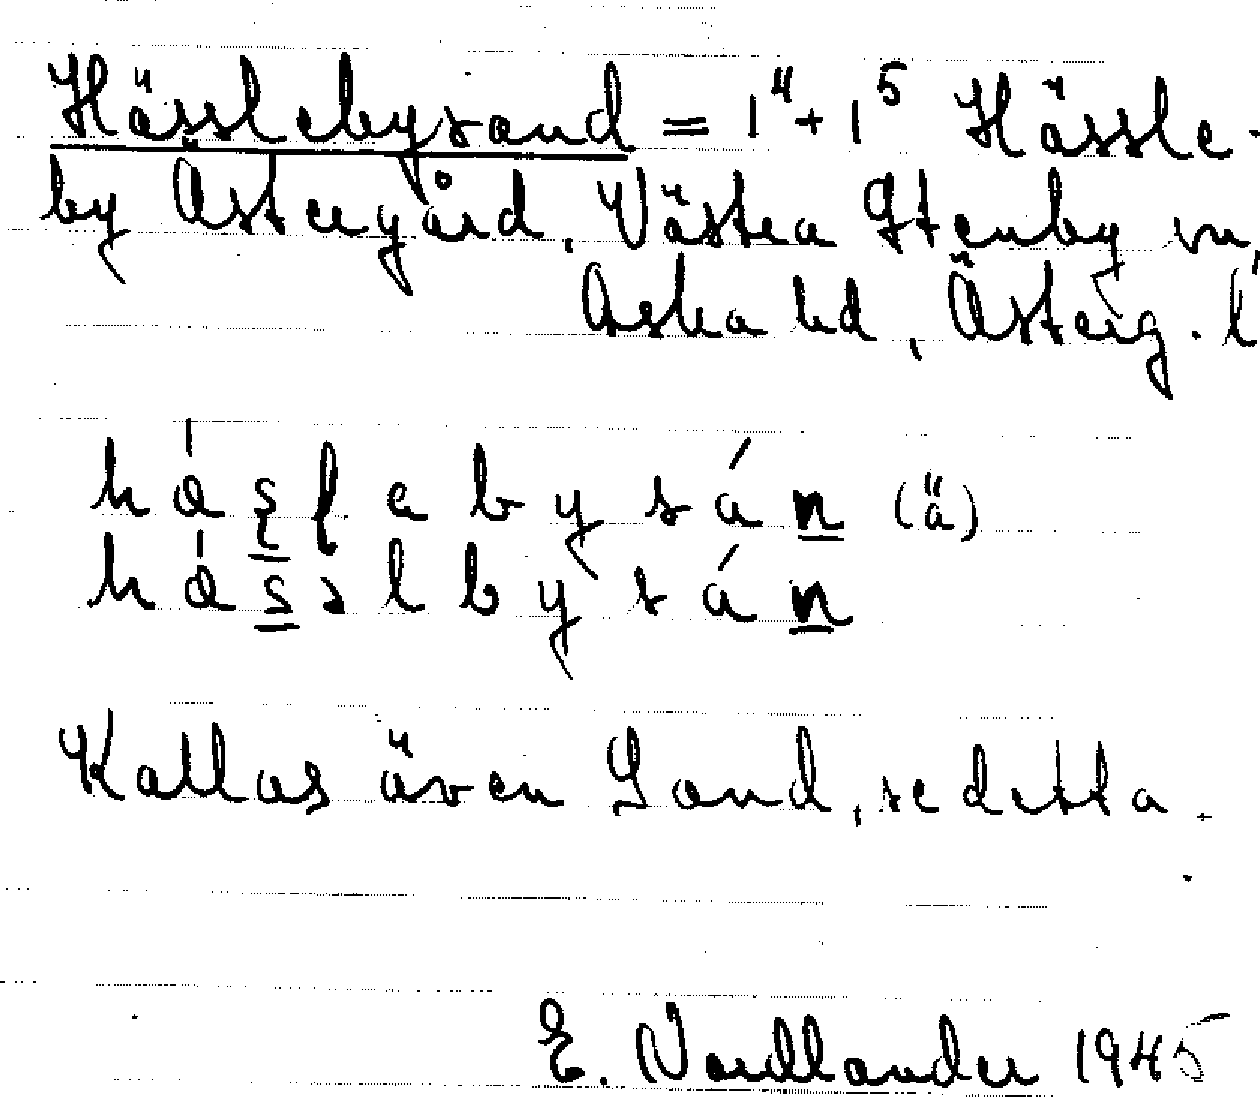 Hässlebysand = 1⁴ + 1⁵ Hässle-
by Östergård, Västra Stenby sn,
Aska hd, Österg. l
há̱s̱ɭabysán̲ (ä)
hás̲slbysán̲
Kallas även Sand, se detta.
E. Nordlander 1945